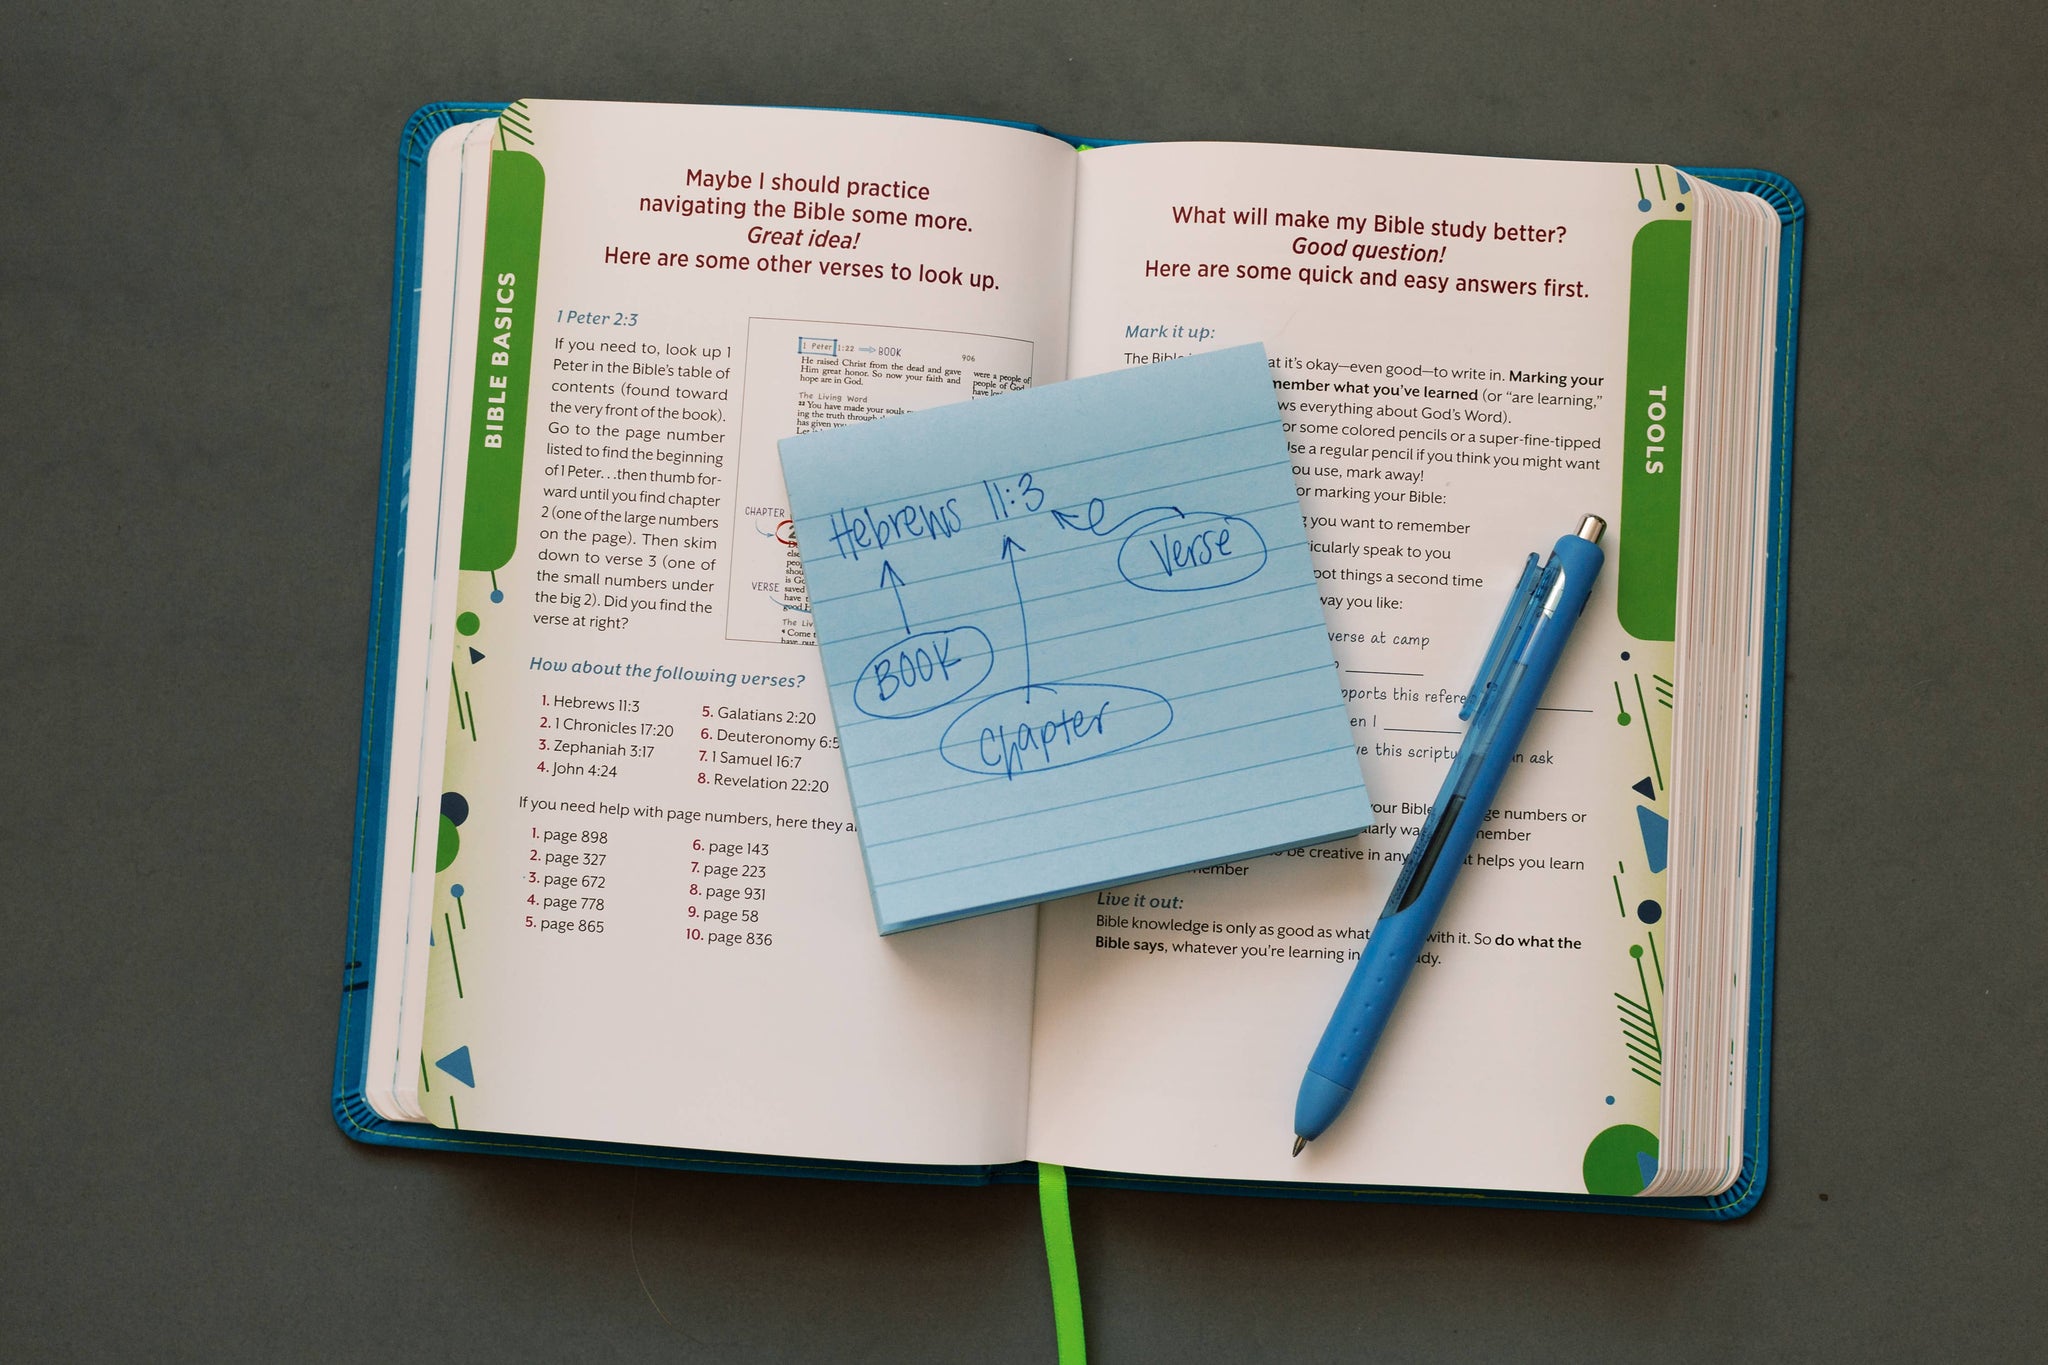 BIBLE BASICS
Maybe I should practice
navigating the Bible some more.
Great idea!
Here are some other verses to look up.
1 Peter 2:3
If you need to, look up 1
Peter in the Bible's table of
contents (found toward
the very front of the book).
Go to the page number
listed to find the beginning
of 1 Peter...then thumb for-
ward until you find chapter
2 (one of the large numbers
on the page). Then skim
down to verse 3 (one of
the small numbers under
the big 2). Did you find the
verse at right?
1 Peter 1:22 BOOK
906
He raised Christ from the dead and gave
Him great honor. So now your faith and
hope are in God.
The Living Word
22 You have made your souls
ing the truth through
has given you
were a people of
people of God
have
CHAPTER
2
VERSE
else
shou
is Go
saved
have t
good
The Liv
4 Come t
How about the following verses?
1. Hebrews 11:3
2. 1 Chronicles 17:20
3. Zephaniah 3:17
4. John 4:24
5. Galatians 2:20
6. Deuteronomy 6:5
7. 1 Samuel 16:7
8. Revelation 22:20
If you need help with page numbers, here they
1. page 898
2. page 327
3. page 672
4. page 778
5. page 865
6. page 143
7. page 223
8. page 931
9. page 58
10. page 836
Hebrews 11:3
Verse
BOOK
Chapter
TOOLS
What will make my Bible study better?
Good question!
Here are some quick and easy answers first.
Mark it up:
The Bible at it's okay—even good—to write in. Marking your
member what you've learned (or "are learning,"
ws everything about God's Word).
or some colored pencils or a super-fine-tipped
Use a regular pencil if you think you might want
ou use, mark away!
for marking your Bible:
g you want to remember
ticularly speak to you
pot things a second time
way you like:
verse at camp
pports this refere
en I
ve this scriptu n ask
your Bible ge numbers or
larly wa member
be creative in any at helps you learn
member
Live it out:
Bible knowledge is only as good as what with it. So do what the
Bible says, whatever you're learning in dy.